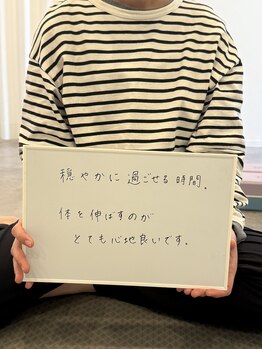 穏やかに過ごせる時間.
体を伸ばすのが
とても心地良いです.